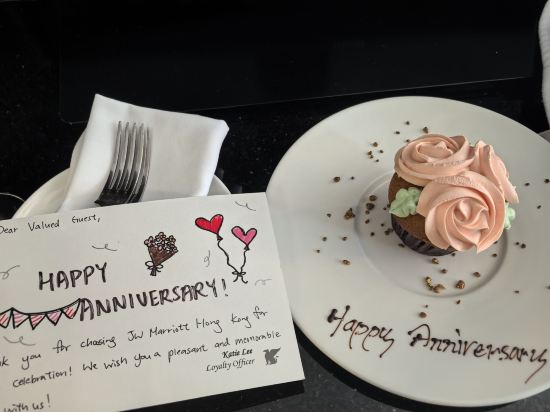 Dear Valued Guest,
HAPPY
ANNIVERSARY!
you for chasing JW Marriott Hong Kong for
celebration! We wish you a pleasant and memorable
with us!
Katie Lee
Loyalty Officer
Happy Anniversary